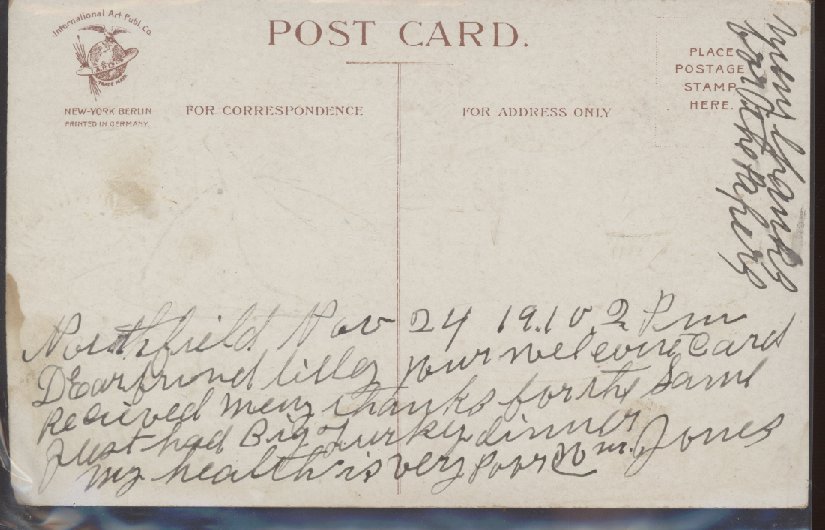 International Art Publ. Co.
TRADE MARK
NEW-YORK BERLIN
PRINTED IN GERMANY.
POST CARD.
FOR CORRESPONDENCE
FOR ADDRESS ONLY
PLACE
POSTAGE
STAMP
HERE.
Northfield Nov 24 19.10 2 Pm
DEar friend lilley your welcome Card
Recieved meny thanks for the Same
Just had Big Turkey dinner
my health is very Poor Wm. Jones
meny thanks
for the